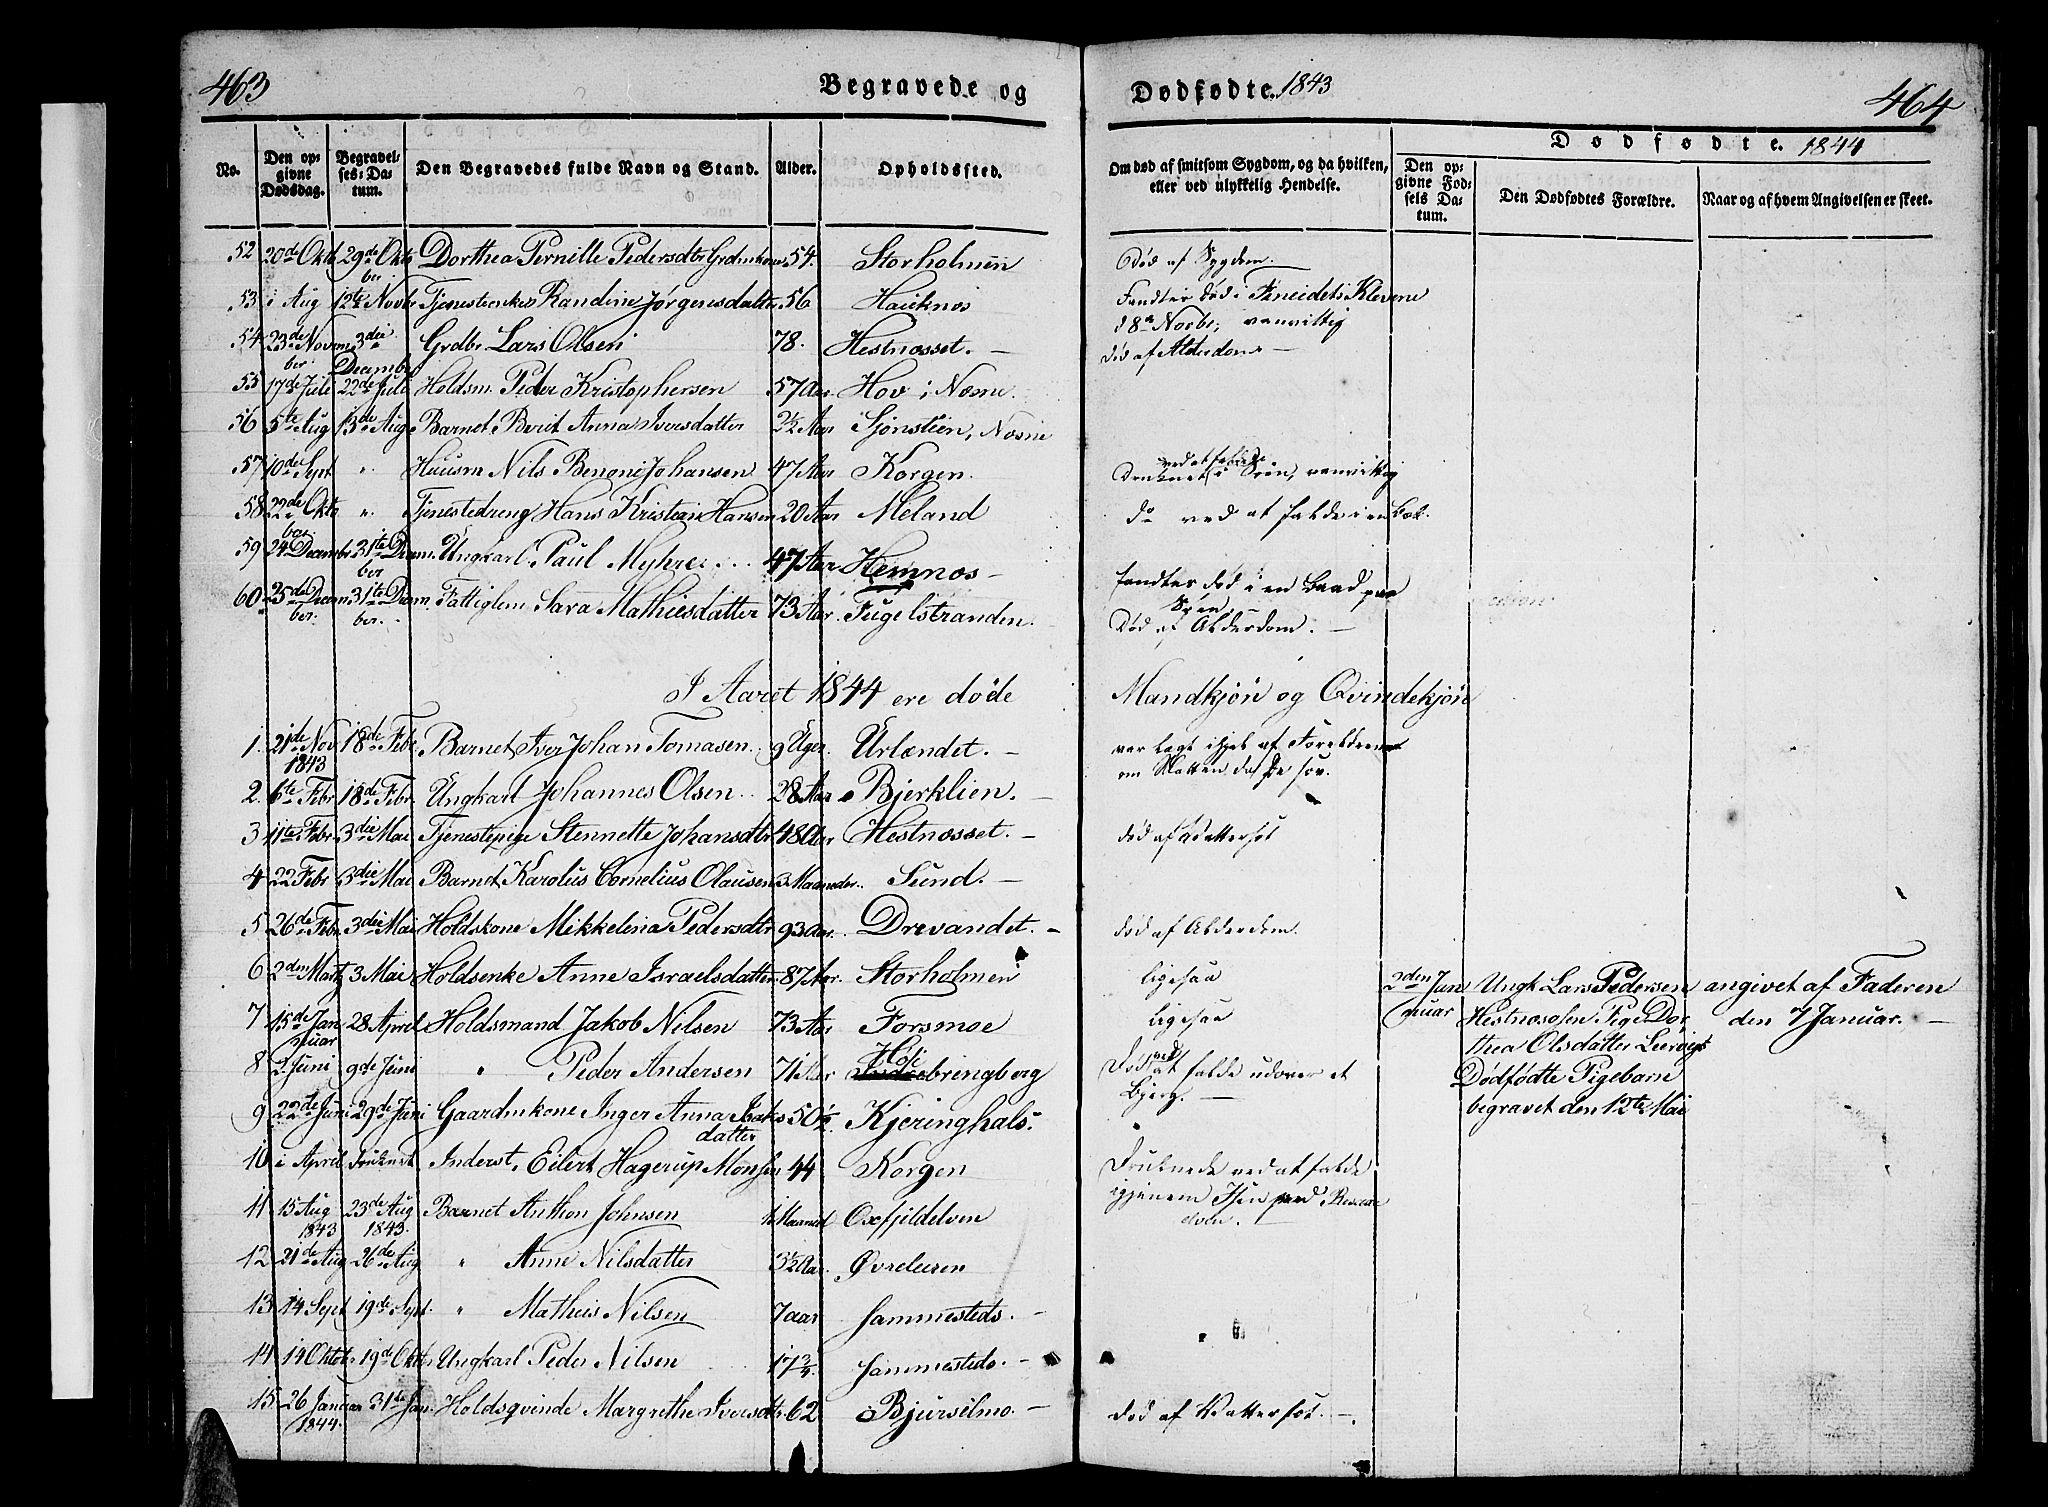 463
Begravede og
Dødfødte. 1843
464
Dødfødte. 1844
No.
Den op-
givne
Dødsdag.
Begravel-
ses-Da-
tum.
Den Begravedes fulde Navn og Stand.
Alder.
Opholdsfted.
Om død af smitsom Sygdom, og da hvilken,
eller ved ulykkelig Hendelse.
Den op-
givne Fød-
sels Da-
tum.
Den Dødfødtes Forældre.
Naar og af hvem Angivelsen er skeet.
52 20de Okt 29de Oktr Dorthea Pernille Pedersdtr 54. Storholmen Død af Sygdom.
ber
53 i Aug 12te Novbr Tjenestienke Randine Jørgensdatter 56 Hauknes Fandtes død i
d 8de Novbr, vanvittig
54 23de Novm 3die Grdbr Lars Olsen 78. Hestnesset. — død af Alderdom —
ber December
55 17de Juli 22de Juli Holdsm Peder Kristophersen 57 Aar Hov i Næsne
56 5te Aug 13de Aug Barnet Berit Anna Iversdatter 2½ Aar Sjonstien, Næsne
57 10de Sept " Huusm Nils Benoni Johansen 47 Aar Korgen. Druknet ved at falde i Søen, vanvittig
58 22de Okto " Tjenestedreng Hans Kristian Hansen 20 Aar Meland do ved at falde i en Bæk.
ber
59 24 Decembr 31te Decem. Ungkarl Paul Myhre 47 Aar Hemnæs — fandtes død i en Baad paa
ber Søen.
60 25de Decem 31te Decem. Fattiglem Sara Mathiesdatter 73 Aar. Fugelstranden. Død af Alderdom. —
ber. ber.
I Aaret 1844 ere døde Mandkjøn og Qvindekjøn
1. 21de Nov 18de Febr Barnet Iver Johan Tomasen 9 Uger. Urlændet. — var lagt ihjel af Forældrene
1843 om Natten da de sov.
2. 6te Febr 18de Febr. Ungkarl Johannes Olsen 28 Aar Bjerklien. —
3 11te Febr. 3die Mai Tjenestepige Stennette Johansdtr 48 Aar Hestnesset. — død af Vattersot
4 22 Febr 3die Mai Barnet Karolus Cornelius Olausen 3 Maaneder. Sund. —
5 26de Febr. 3die Mai Holdskone Mikkelina Pedersdtr 93 Aar. Drevandet. — død af Alderdom.
6 2den Martz 3 Mai Holdsenke Anne Israelsdatter 87 Aar. Storholmen ligesaa
2den Jan Ungk Lars Pedersen angivet af Faderen
7 15de Jan 28 April Holdsmand Jakob Nilsen 73 Aar Forsmoe ligesaa
nuar nuar Hestnesosen, Pige Dor, den 7 Januar. —
thea Olsdatter Leervigt
8 2 Juni 9de Juni " Peder Andersen 71 Aar Hole bringberg Død ved at falde udover et
Bjerg. —
Dødfødte Pigebarn
9 22de Juni 29de Juni Gaardmkone Inger Anna Isaks 50½. Kjeringhals.
datter
begravet den 12te Mai
10 i April Druknet Inderst, Eilert Hagerup Monsen 44 Korgen Druknede ved at falde
igjennem Isen paa
elven. —
11 15 Aug 23de Aug Barnet Anthon Johnsen Maaned Oxfjeldelven
1843 1843.
12 21de Aug 26de Aug " Anne Nilsdatter 3½ Aar. Øvreleeren
13 14 Sept 19de Sept. " Matheis Nilsen 7 aar sammesteds. —
14 14 Oktobr 19de Oktbr Ungkarl Peder Nilsen 17¾ sammesteds. —
15. 26 Januar 31te Jan. Holdsqvinde Margrethe Iversdtr 62 Bjursilmo. — død af Vattersot. —
1844.